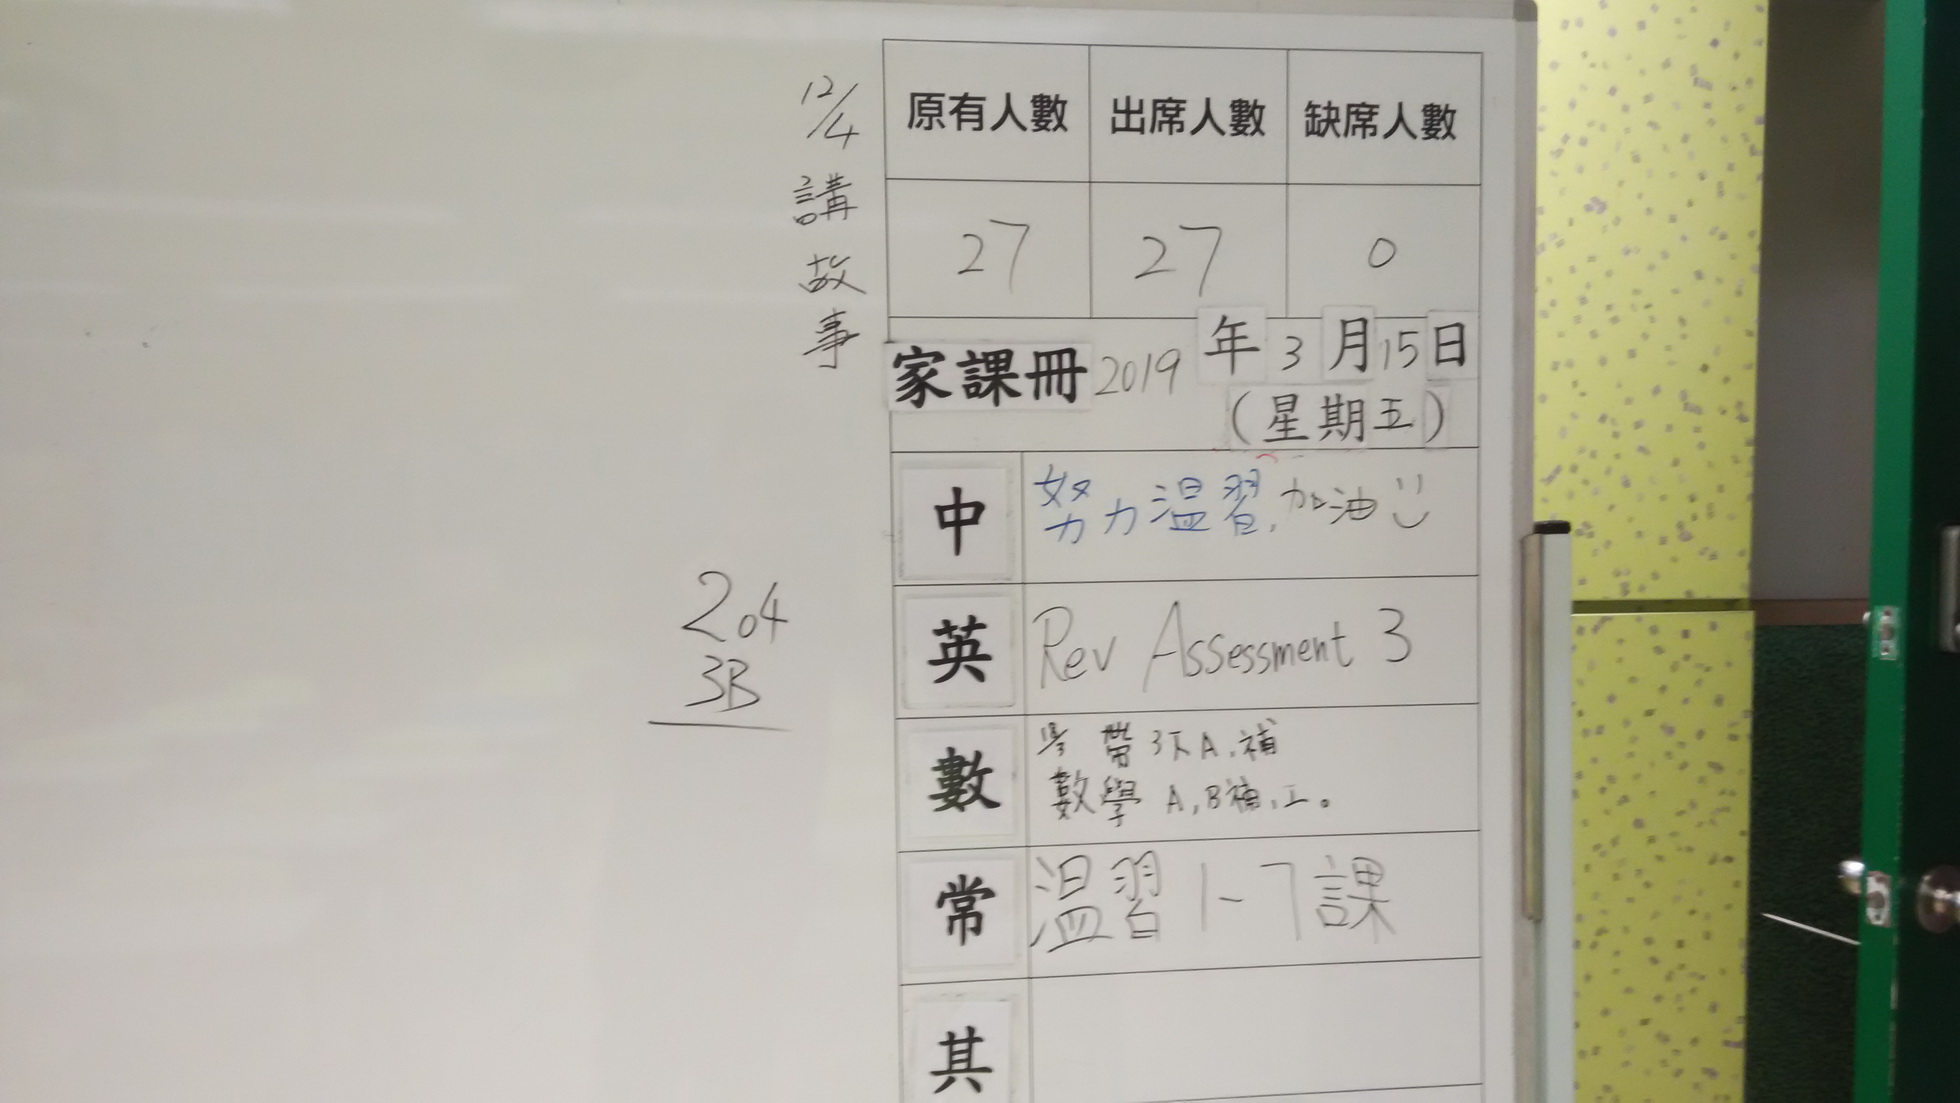 12/4
講故事
原有人數 出席人數 缺席人數
27 27 0
家課冊 2019年3月15日
(星期五)
中 努力溫習,加油
英 Rev Assessment 3
數 帶3下A,補
數學 A,B補,工。
常 溫習1-7課
其
204
3B